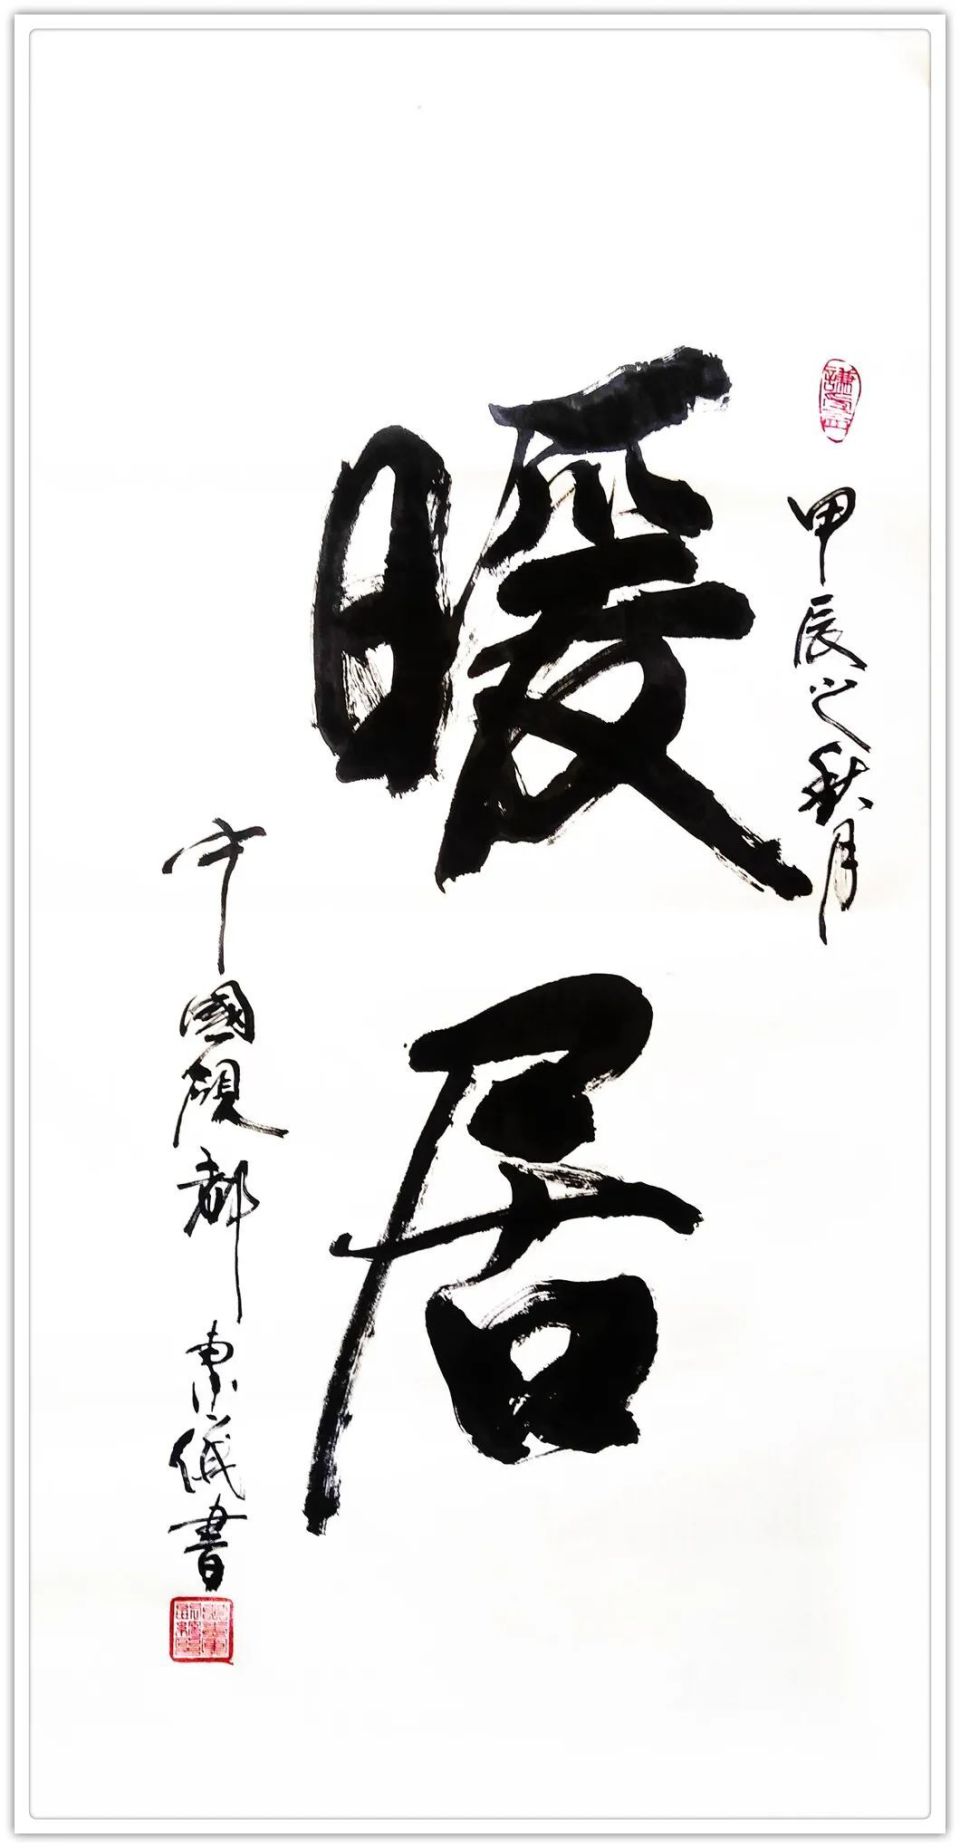 甲辰之秋月
暖居
中國硯都 東儀書